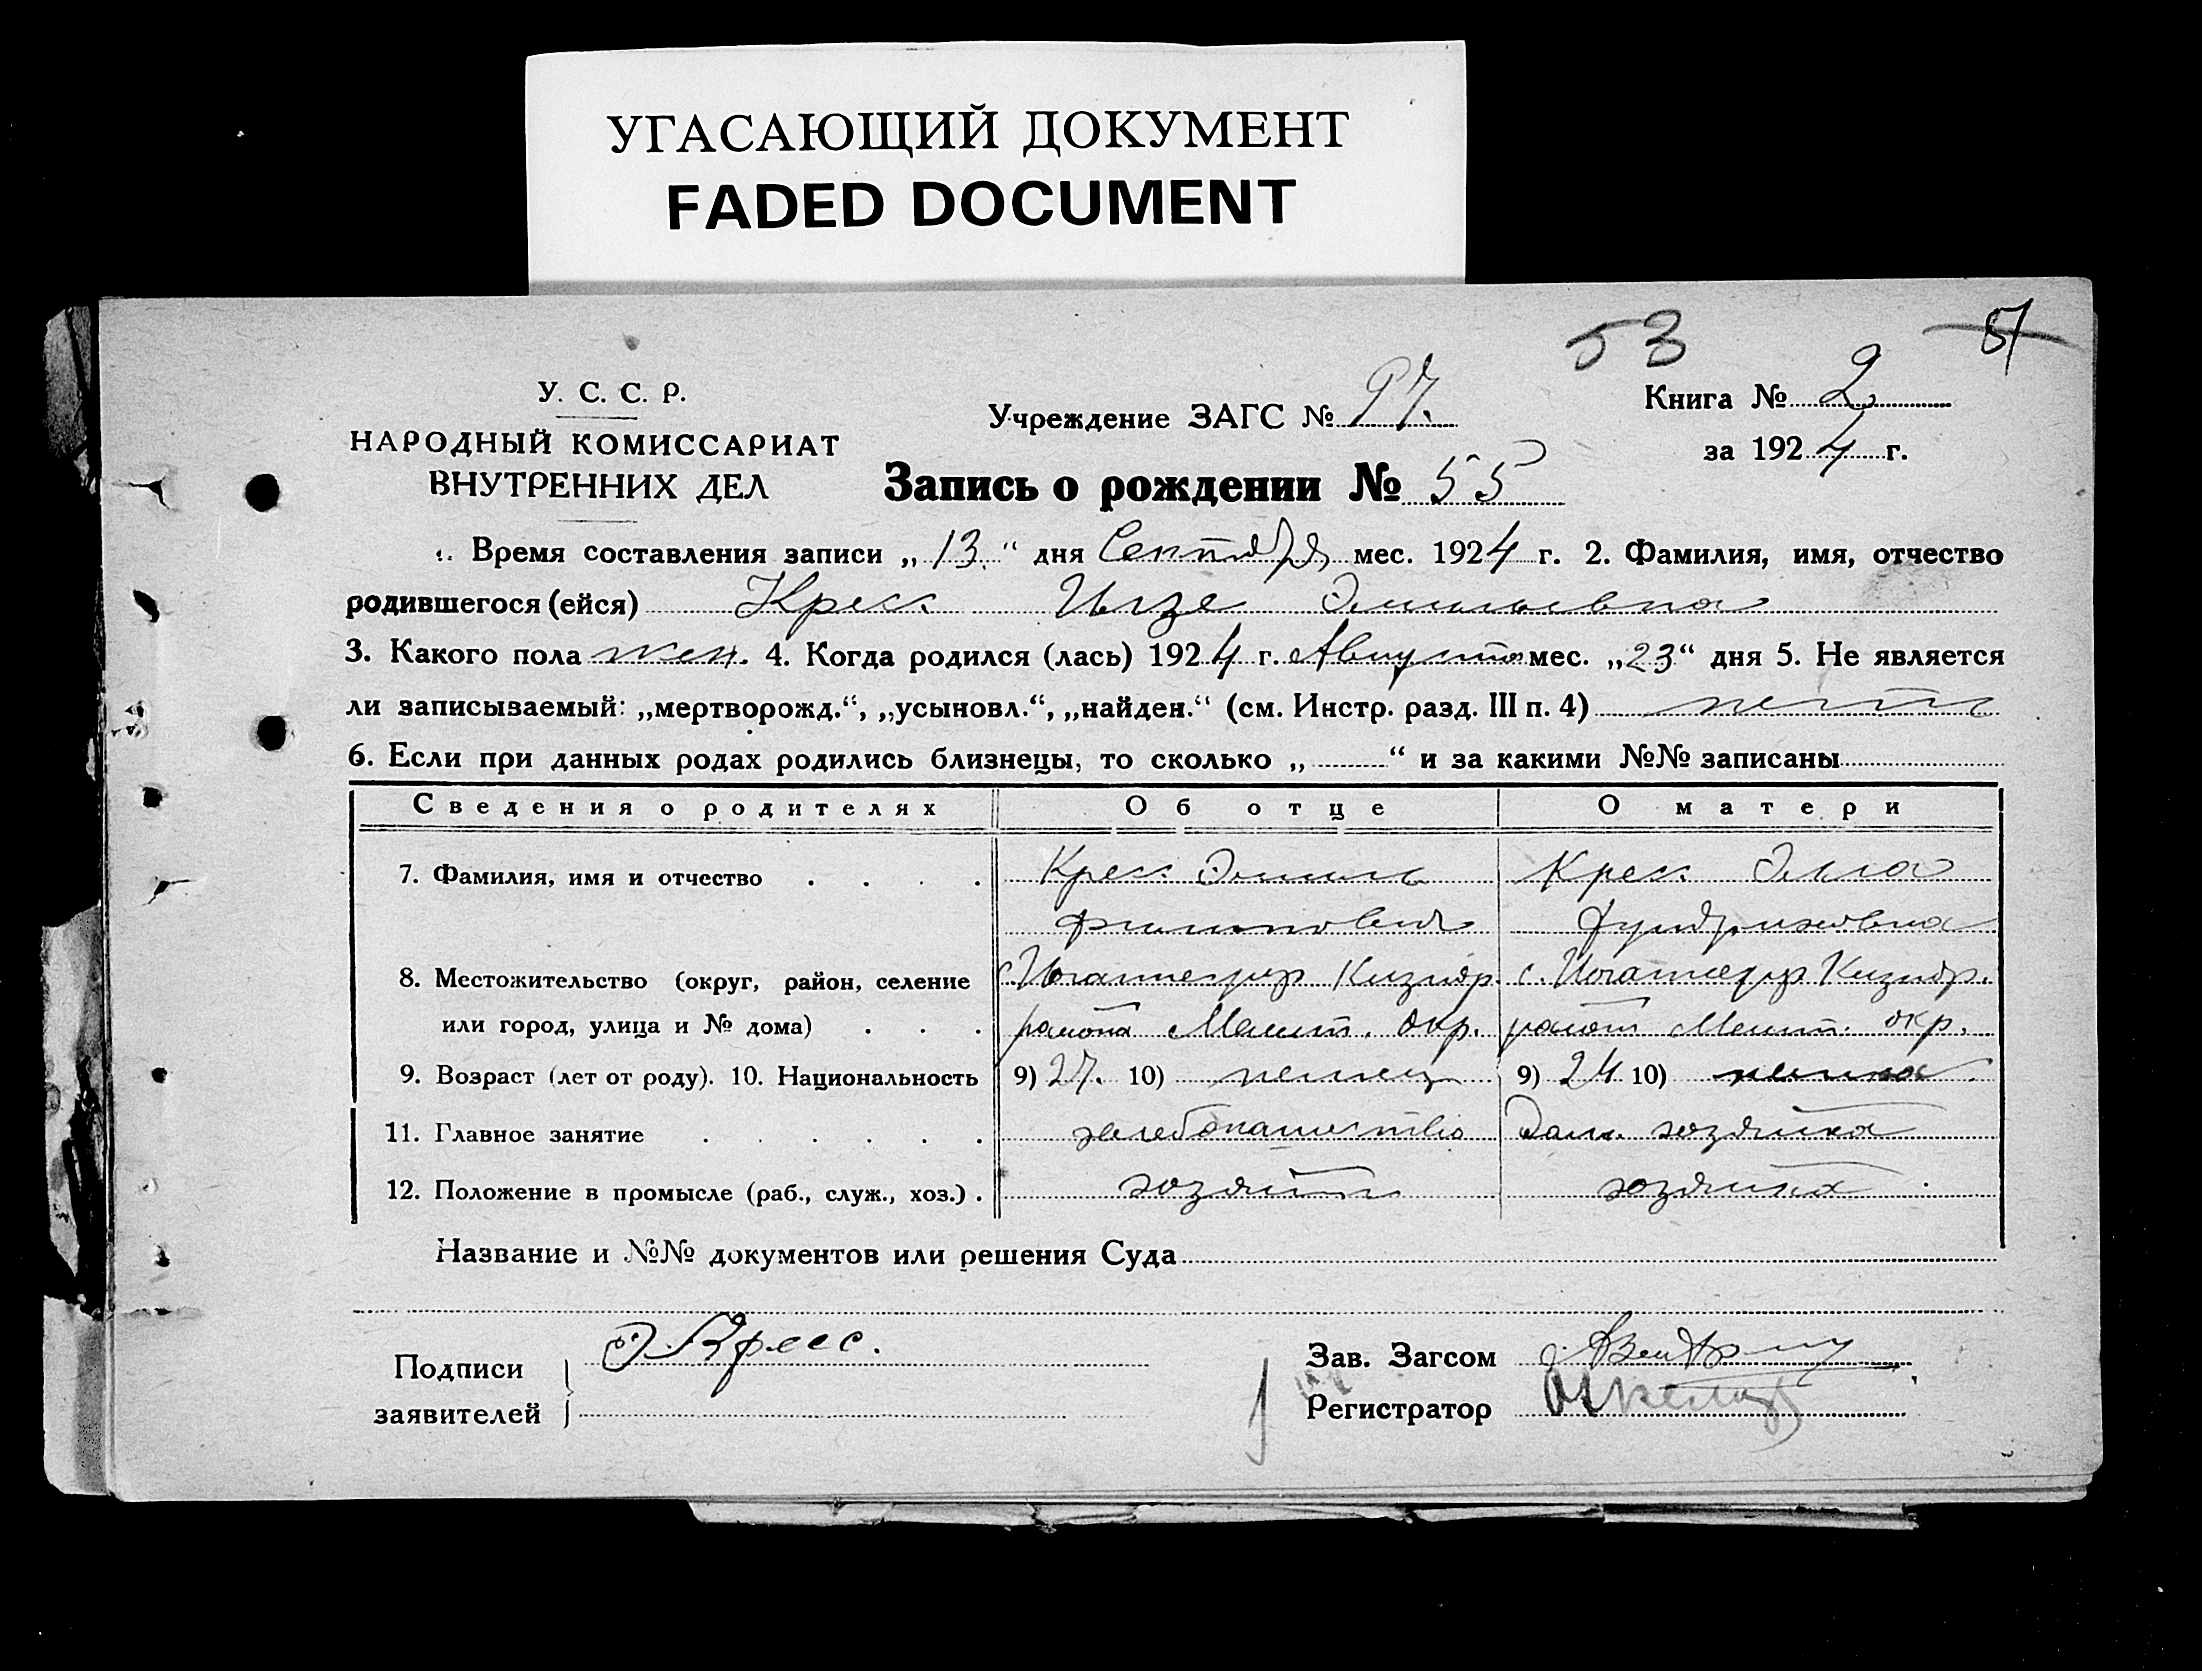 УГАСАЮЩИЙ ДОКУМЕНТ
FADED DOCUMENT
53 51
У. С. С. Р.
НАРОДНЫЙ КОМИССАРИАТ
ВНУТРЕННИХ ДЕЛ
Учреждение ЗАГС № 97.
Книга № 2
за 1924 г.
Запись о рождении № 55
1. Время составления записи „13.“ дня Сентября мес. 1924 г. 2. Фамилия, имя, отчество
родившегося (ейся) Кресс Ильзе Эмильевна
3. Какого пола жен. 4. Когда родился (лась) 1924 г. Августа мес. „23“ дня 5. Не является
ли записываемый: „мертворожд.“, „усыновл.“, „найден.“ (см. Инстр. разд. III п. 4) нет
6. Если при данных родах родились близнецы, то сколько „ “ и за какими №№ записаны
Сведения о родителях Об отце О матери
7. Фамилия, имя и отчество Кресс Эмиль Кресс Элла
Филиппович Фридриховна
8. Местожительство (округ, район, селение с. Кизияр. с. Кизияр.
или город, улица и № дома) района Мелит. окр. района Мелит. окр.
9. Возраст (лет от роду). 10. Национальность 9) 27. 10) немец 9) 24 10) немка
11. Главное занятие хлебопашество Дом. хозяйка
12. Положение в промысле (раб., служ., хоз.) хозяин хозяйка
Название и №№ документов или решения Суда
Подписи
заявителей
Э. Кресс.
Зав. Загсом
Регистратор